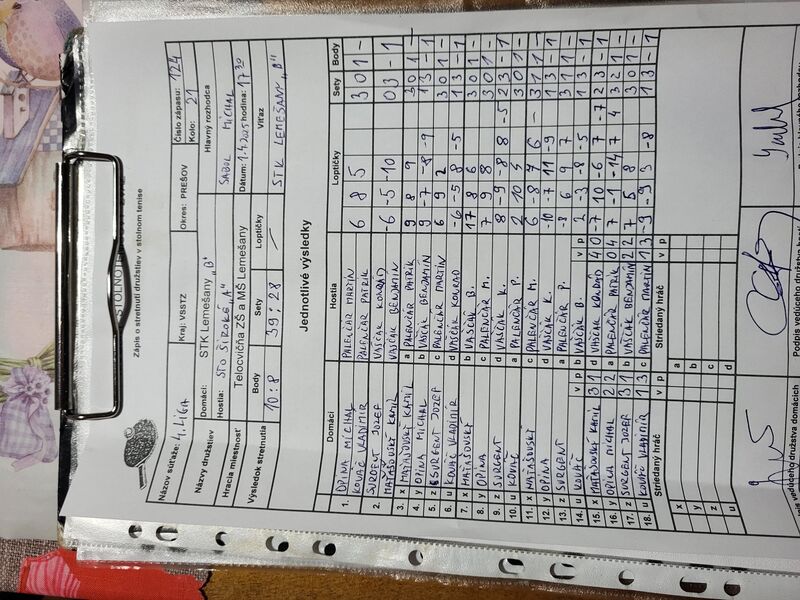 STOLNOTE
Zápis o stretnutí družstiev v stolnom tenise
Názov súťaže: 4. LIGA Kraj: VSSTZ Okres: PREŠOV Číslo zápasu: 124
Kolo: 21
Názvy družstiev Domáci: STK Lemešany „B“ Hlavný rozhodca
Hostia: STO ŠIROKÉ „A“ SABOL MICHAL
Hracia miestnosť Telocvičňa ZŠ a MŠ Lemešany Dátum: 1.4.2025 hodina: 17 30
Výsledok stretnutia Body Sety Loptičky Víťaz
10:8 39:28 / STK LEMEŠANY „B“
Jednotlivé výsledky
Domáci Hostia Loptičky Sety Body
1. OPINA MICHAL PALENČÁR MARTIN 6 8 5 3 0 1 -
KOVÁČ VLADIMÍR PALENČÁR PATRIK
2. SURGENT JOZEF VAŠČÁK KONRÁD -6 -5 -10 0 3 - 1
MAŤAŠOVSKÝ KAMIL VAŠČÁK BENJAMÍN
3. x MAŤAŠOVSKÝ KAMIL a PALENČÁR PATRIK 9 8 9 3 0 1 -
4. y OPINA MICHAL b VAŠČÁK BENJAMÍN 9 -7 -8 -9 1 3 - 1
5. z SURGENT JOZEF c PALENČÁR MARTIN 6 9 2 3 0 1 -
6. u KOVÁČ VLADIMÍR d VAŠČÁK KONRÁD -6 -5 8 -5 1 3 - 1
7. x MAŤAŠOVSKÝ b VAŠČÁK B. 17 8 6 3 0 1 -
8. y OPINA c PALENČÁR M. 7 9 8 3 0 1 -
9. z SURGENT d VAŠČÁK K. 8 -9 -8 8 -5 2 3 - 1
10. u KOVÁČ a PALENČÁR P. 3 0 1 -
11. x MAŤAŠOVSKÝ c PALENČÁR M. 6 -8 7 6 3 1 1 -
12. y OPINA d VAŠČÁK K. -10 -7 11 -9 1 3 - 1
13. z SURGENT a PALENČÁR P. -8 6 9 7 3 1 1 -
14. u KOVÁČ v p b VAŠČÁK B. v p 2 -3 -8 -5 1 3 - 1
15. x MAŤAŠOVSKÝ KAMIL 3 1 d VAŠČÁK KONRÁD 4 0 -7 10 -6 7 -7 2 3 - 1
16. y OPINA MICHAL 2 2 a PALENČÁR PATRIK 0 4 7 -1 -14 7 4 3 2 1 -
17. z SURGENT JOZEF 3 1 b VAŠČÁK BENJAMÍN 2 2 7 5 8 3 0 1 -
18. u KOVÁČ VLADIMÍR 1 3 c PALENČÁR MARTIN 1 3 -9 -9 3 -8 1 3 - 1
Striedaný hráč v p Striedaný hráč v p
x a
y b
z c
u d
vedúceho družstva domácich
Podpis vedúceho družstva